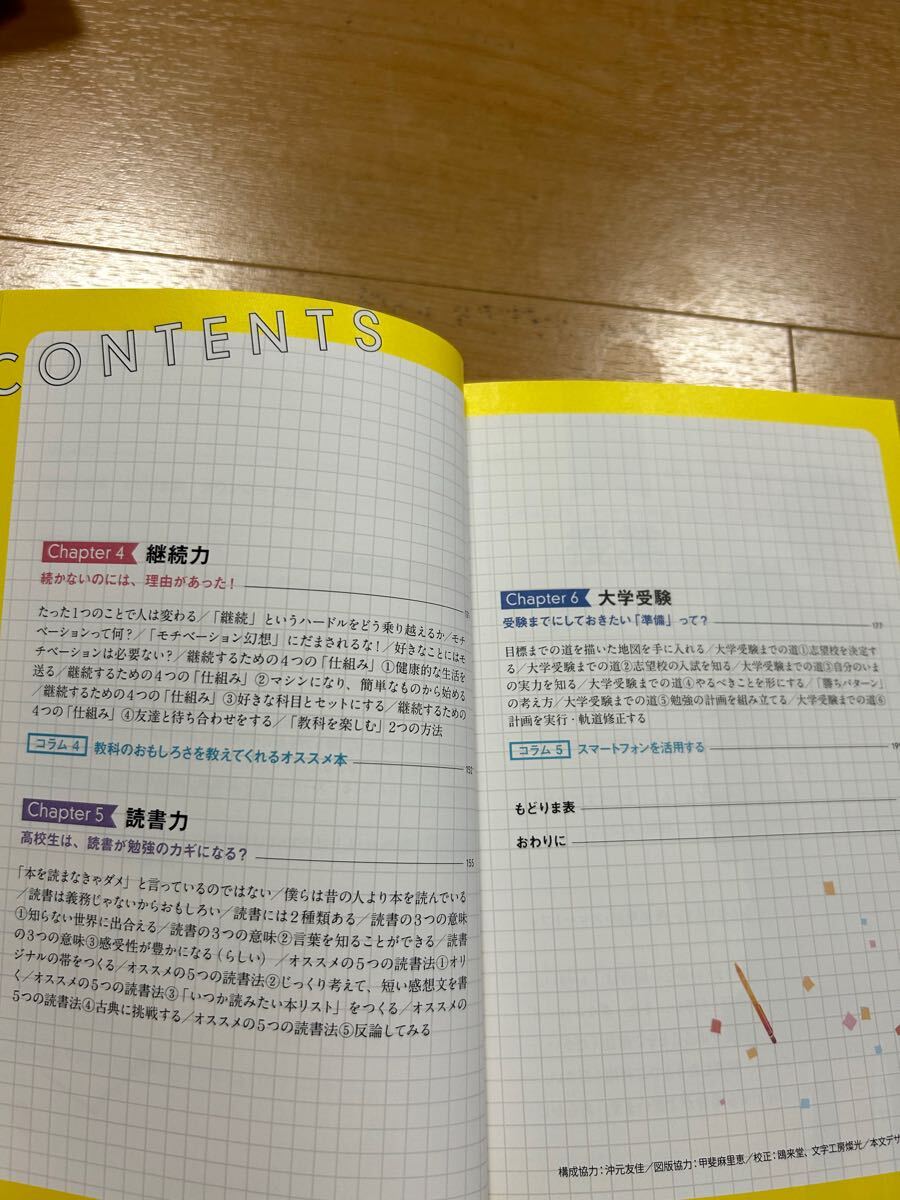 CONTENTS
Chapter 4 継続力
続かないのには、理由があった!
たった1つのことで人は変わる/「継続」というハードルをどう乗り越えるか/モチ
ベーションって何?/「モチベーション幻想」にだまされるな!/好きなことにはモ
チベーションは必要ない?/継続するための4つの「仕組み」①健康的な生活を
送る/継続するための4つの「仕組み」②マシンになり、簡単なものから始める
/継続するための4つの「仕組み」③好きな科目とセットにする/継続するための
4つの「仕組み」④友達と待ち合わせをする/「教科を楽しむ」2つの方法
コラム 4 教科のおもしろさを教えてくれるオススメ本 152
Chapter 5 読書力
高校生は、読書が勉強のカギになる? 155
「本を読まなきゃダメ」と言っているのではない/僕らは昔の人より本を読んでいる
/読書は義務じゃないからおもしろい/読書には2種類ある/読書の3つの意味
①知らない世界に出合える/読書の3つの意味②言葉を知ることができる/読書
の3つの意味③感受性が豊かになる(らしい)/オススメの5つの読書法①オリ
ジナルの帯をつくる/オススメの5つの読書法②じっくり考えて、短い感想文を書
く/オススメの5つの読書法③「いつか読みたい本リスト」をつくる/オススメの
5つの読書法④古典に挑戦する/オススメの5つの読書法⑤反論してみる
Chapter 6 大学受験
受験までにしておきたい「準備」って? 177
目標までの道を描いた地図を手に入れる/大学受験までの道①志望校を決定す
る/大学受験までの道②志望校の入試を知る/大学受験までの道③自分のいま
の実力を知る/大学受験までの道④やるべきことを形にする/「勝ちパターン」
の考え方/大学受験までの道⑤勉強の計画を組み立てる/大学受験までの道⑥
計画を実行・軌道修正する
コラム 5 スマートフォンを活用する
もどりま表
おわりに
構成協力:沖元友佳/図版協力:甲斐麻里恵/校正:鴎来堂、文字工房燦光/本文デザ